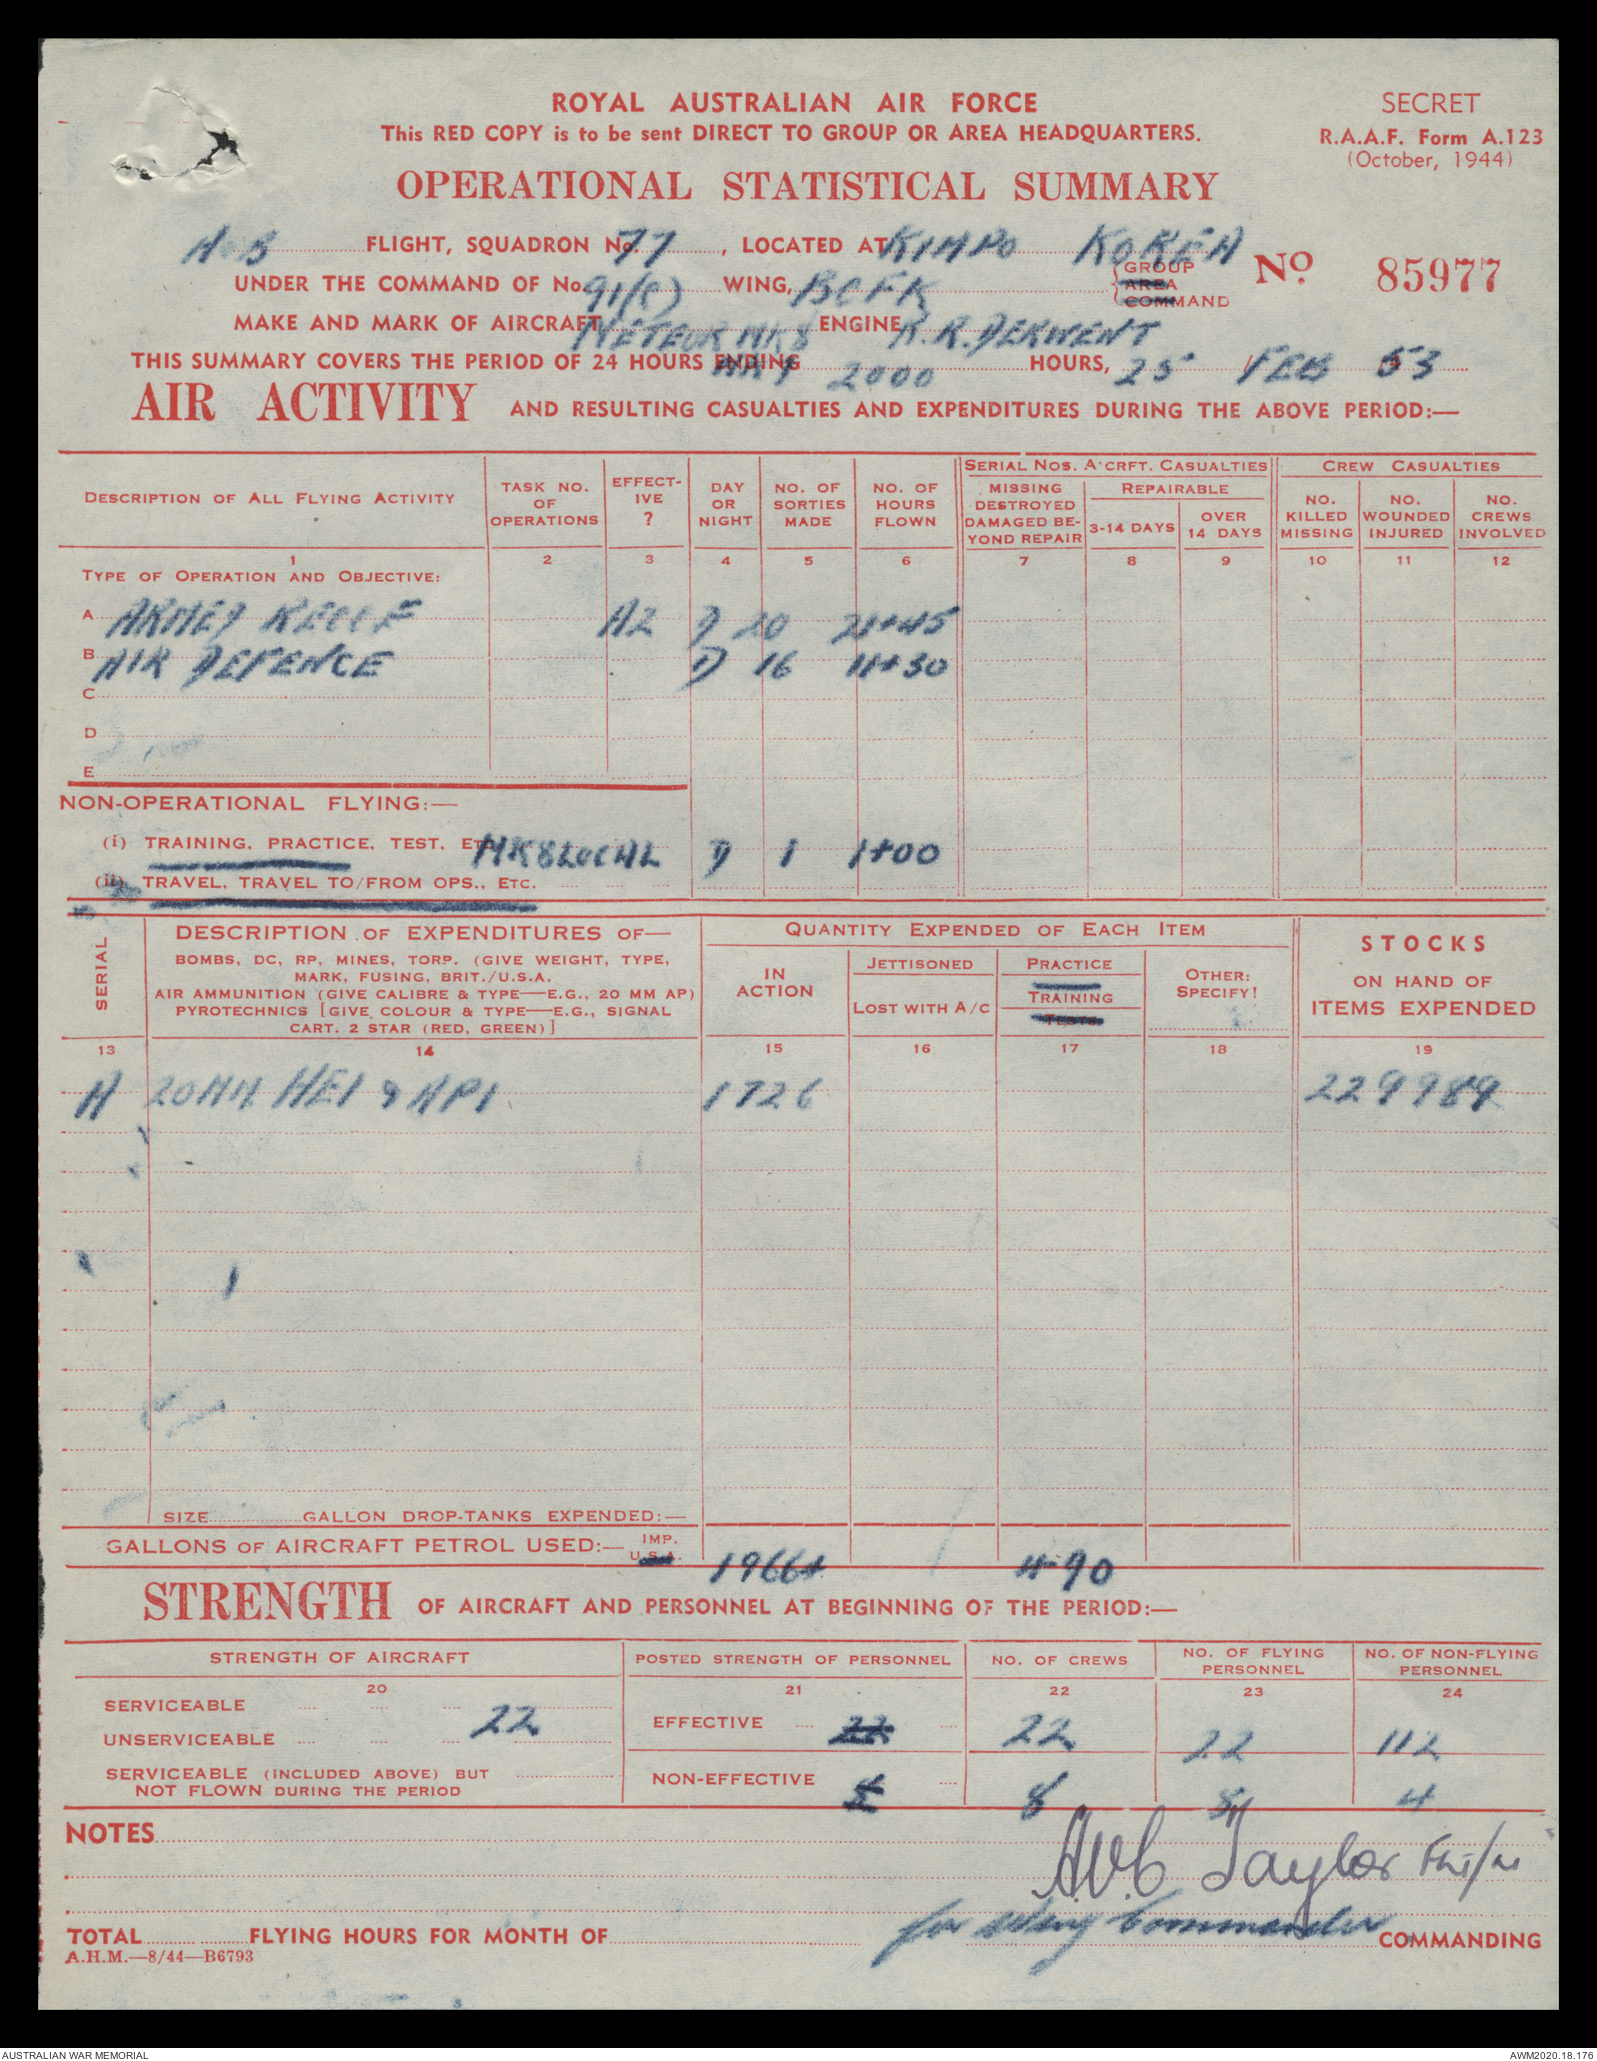 ROYAL AUSTRALIAN AIR FORCE
SECRET
This RED COPY is to be sent DIRECT TO GROUP OR AREA HEADQUARTERS.
R.A.A.F. Form A.123
(October, 1944)
OPERATIONAL STATISTICAL SUMMARY
FLIGHT, SQUADRON No. 77, LOCATED AT KIMPO KOREA
No 85977
UNDER THE COMMAND OF No. 91(C) WING, BCFK
GROUP
AREA
COMMAND
MAKE AND MARK OF AIRCRAFT METEOR MK8 ENGINE R.R. DERWENT
THIS SUMMARY COVERS THE PERIOD OF 24 HOURS ENDING 2000 HOURS, 25 / FEB 53
AIR ACTIVITY AND RESULTING CASUALTIES AND EXPENDITURES DURING THE ABOVE PERIOD:—
DESCRIPTION OF ALL FLYING ACTIVITY
TASK NO. OF OPERATIONS
EFFECT-IVE ?
DAY OR NIGHT
NO. OF SORTIES MADE
NO. OF HOURS FLOWN
SERIAL NOS. A'CRFT. CASUALTIES
MISSING DESTROYED DAMAGED BE-YOND REPAIR
REPAIRABLE
3-14 DAYS
OVER 14 DAYS
CREW CASUALTIES
NO. KILLED MISSING
NO. WOUNDED INJURED
NO. CREWS INVOLVED
1 2 3 4 5 6 7 8 9 10 11 12
TYPE OF OPERATION AND OBJECTIVE:
A ARMED RECCE A2 D 20 21+45
B AIR DEFENCE D 16 11+30
C
D
E
NON-OPERATIONAL FLYING:—
(i) TRAINING, PRACTICE, TEST, ETC. MK8 LOCAL D 1 1+00
(ii) TRAVEL, TRAVEL TO/FROM OPS., ETC.
SERIAL
DESCRIPTION OF EXPENDITURES OF—
BOMBS, DC, RP, MINES, TORP. (GIVE WEIGHT, TYPE,
MARK, FUSING, BRIT./U.S.A.
AIR AMMUNITION (GIVE CALIBRE & TYPE—E.G., 20 MM AP)
PYROTECHNICS [GIVE COLOUR & TYPE—E.G., SIGNAL
CART. 2 STAR (RED, GREEN)]
QUANTITY EXPENDED OF EACH ITEM
IN ACTION
JETTISONED
LOST WITH A/C
PRACTICE
TRAINING
TESTS
OTHER: SPECIFY!
STOCKS
ON HAND OF
ITEMS EXPENDED
13 14 15 16 17 18 19
A 20MM HEI & API 1726 229989
SIZE GALLON DROP-TANKS EXPENDED:—
GALLONS OF AIRCRAFT PETROL USED:— IMP. U.S.A. 19664 490
STRENGTH OF AIRCRAFT AND PERSONNEL AT BEGINNING OF THE PERIOD:—
STRENGTH OF AIRCRAFT
POSTED STRENGTH OF PERSONNEL
NO. OF CREWS
NO. OF FLYING PERSONNEL
NO. OF NON-FLYING PERSONNEL
20 21 22 23 24
SERVICEABLE 22
EFFECTIVE 22 22 22 112
UNSERVICEABLE
SERVICEABLE (INCLUDED ABOVE) BUT
NOT FLOWN DURING THE PERIOD
NON-EFFECTIVE 8 8 4
NOTES
A.V.C Taylor Flt/Lt
for Wing Commander COMMANDING
TOTAL FLYING HOURS FOR MONTH OF
A.H.M.—8/44—B6793
AUSTRALIAN WAR MEMORIAL
AWM2020.18.176